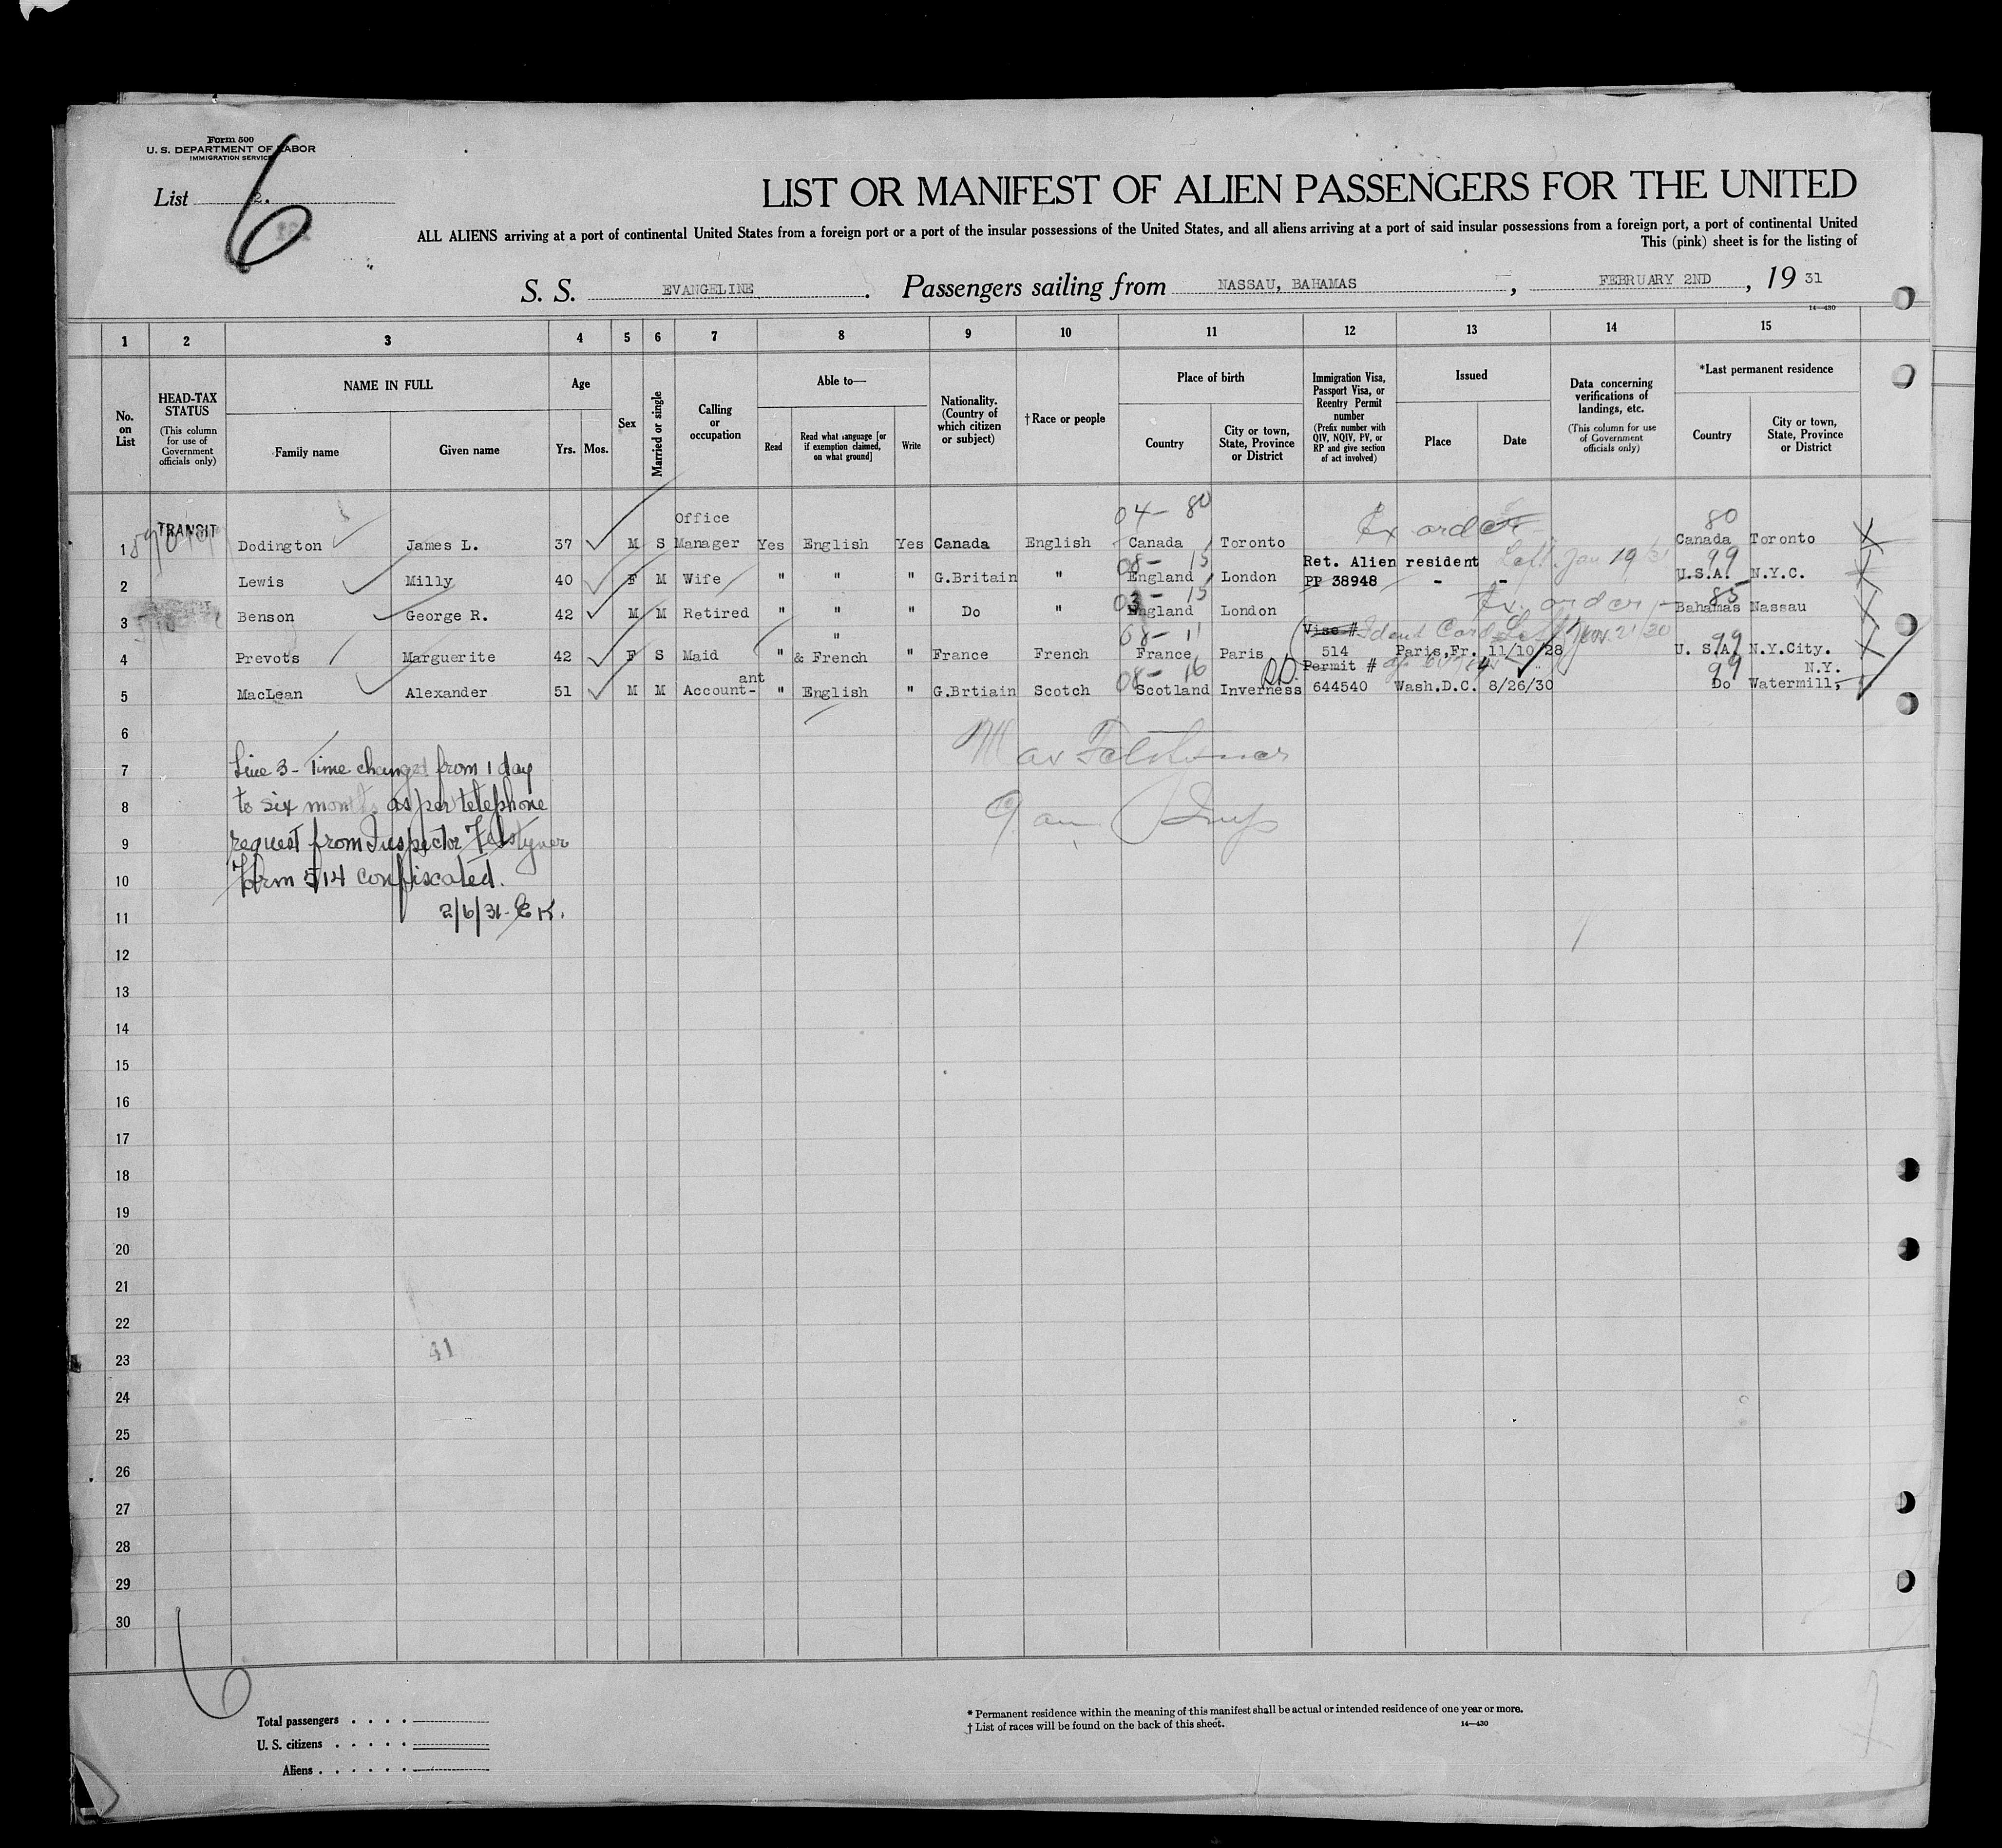 Form 500
U. S. DEPARTMENT OF LABOR
IMMIGRATION SERVICE
List 2.
6
LIST OR MANIFEST OF ALIEN PASSENGERS FOR THE UNITED
ALL ALIENS arriving at a port of continental United States from a foreign port or a port of the insular possessions of the United States, and all aliens arriving at a port of said insular possessions from a foreign port, a port of continental United
This (pink) sheet is for the listing of
S. S. EVANGELINE. Passengers sailing from NASSAU, BAHAMAS, FEBRUARY 2ND, 19 31
14—430
1 2 3 4 5 6 7 8 9 10 11 12 13 14 15
No. on List
HEAD-TAX STATUS
(This column for use of Government officials only)
NAME IN FULL
Family name Given name
Age
Yrs. Mos.
Sex
Married or single
Calling or occupation
Able to—
Read
Read what language [or if exemption claimed, on what ground]
Write
Nationality. (Country of which citizen or subject)
† Race or people
Place of birth
Country
City or town, State, Province or District
Immigration Visa, Passport Visa, or Reentry Permit number
(Prefix number with QIV, NQIV, PV, or RP and give section of act involved)
Issued
Place Date
Data concerning verifications of landings, etc.
(This column for use of Government officials only)
*Last permanent residence
Country
City or town, State, Province or District
04 - 80 80
TRANSIT Office Ex order
1 Dodington James L. 37 M S Manager Yes English Yes Canada English Canada Toronto Canada Toronto
08 - 15 Ret. Alien resident Left Jan 19 31 99
2 Lewis Milly 40 F M Wife " " " G.Britain " England London PP 38948 - - U.S.A. N.Y.C.
03 - 15 Ex. order 85
3 Benson George R. 42 M M Retired " " " Do " England London Bahamas Nassau
08 - 11 " Vise # Ident Card Left Nov. 21/30 99
4 Prevots Marguerite 42 F S Maid " & French " France French France Paris 514 Paris,Fr. 11/10/28 U. S.A. N.Y.City.
08 - 16 ant Permit # 99 N.Y.
5 MacLean Alexander 51 M M Account- " English " G.Brtiain Scotch Scotland Inverness 644540 Wash.D.C. 8/26/30 Do Watermill,
6
7
8
9
10
11
Line 3 - Time changed from 1 day
to six months as per telephone
request from Inspector Felstyner
Form 514 confiscated.
2/6/31 - E K.
12
13
14
15
16
17
18
19
20
21
22
23
41
24
25
26
27
28
29
30
6
Total passengers
U. S. citizens
Aliens
* Permanent residence within the meaning of this manifest shall be actual or intended residence of one year or more.
† List of races will be found on the back of this sheet.
14—430